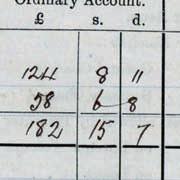 Ordinary Account.
£ s. d.
124 8 11
58 6 8
182 15 7